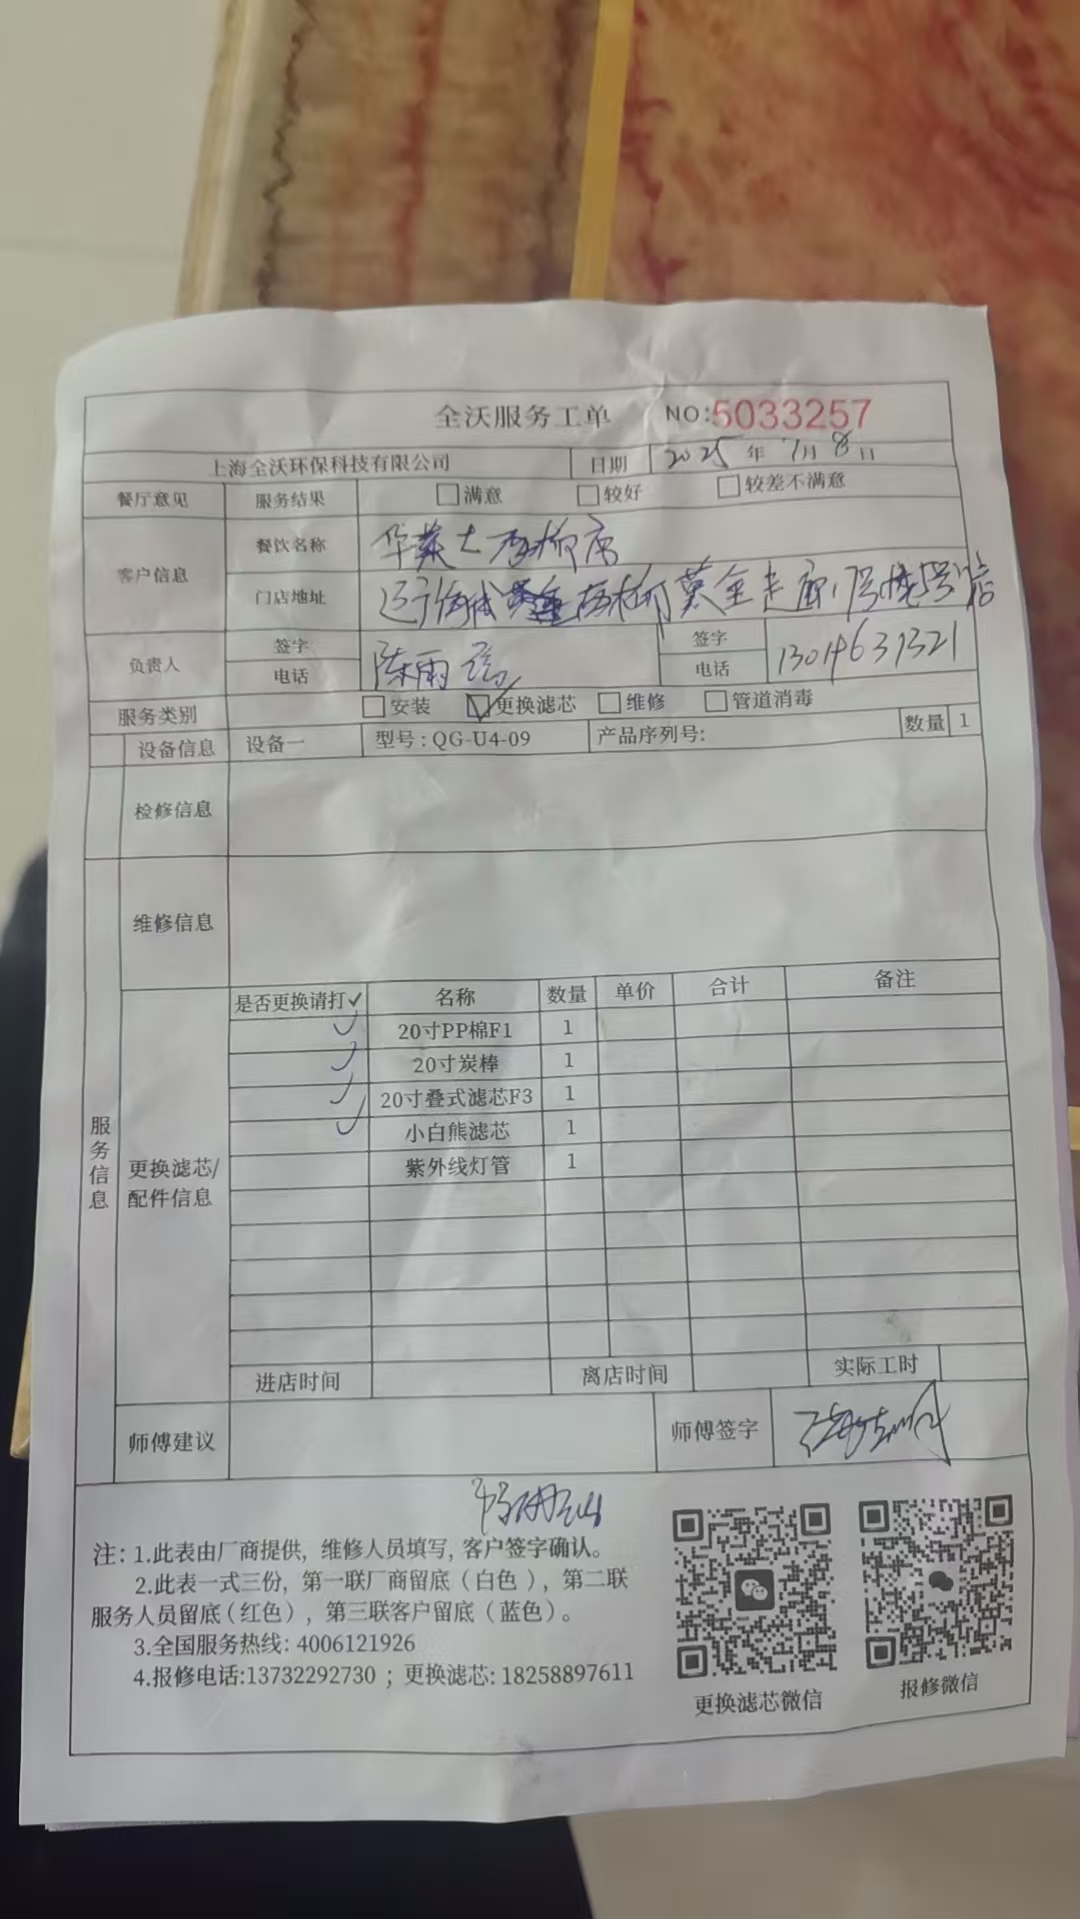 全沃服务工单 NO:5033257
上海全沃环保科技有限公司 日期 2025年7月8日
餐厅意见 服务结果 满意 较好 较差不满意
客户信息 餐饮名称 华莱士 店
门店地址
负责人 签字 陈雨 签字
电话 电话 13019631321
服务类别 安装 更换滤芯 维修 管道消毒
设备信息 设备一 型号:QG-U4-09 产品序列号: 数量 1
检修信息
维修信息
服务信息
更换滤芯/
配件信息
是否更换请打✓ 名称 数量 单价 合计 备注
✓ 20寸PP棉F1 1
✓ 20寸炭棒 1
✓ 20寸叠式滤芯F3 1
✓ 小白熊滤芯 1
紫外线灯管 1
进店时间 离店时间 实际工时
师傅建议 师傅签字
注:1.此表由厂商提供, 维修人员填写, 客户签字确认。
2.此表一式三份, 第一联厂商留底(白色), 第二联
服务人员留底(红色), 第三联客户留底(蓝色)。
3.全国服务热线:4006121926
4.报修电话:13732292730 ; 更换滤芯:18258897611
更换滤芯微信 报修微信